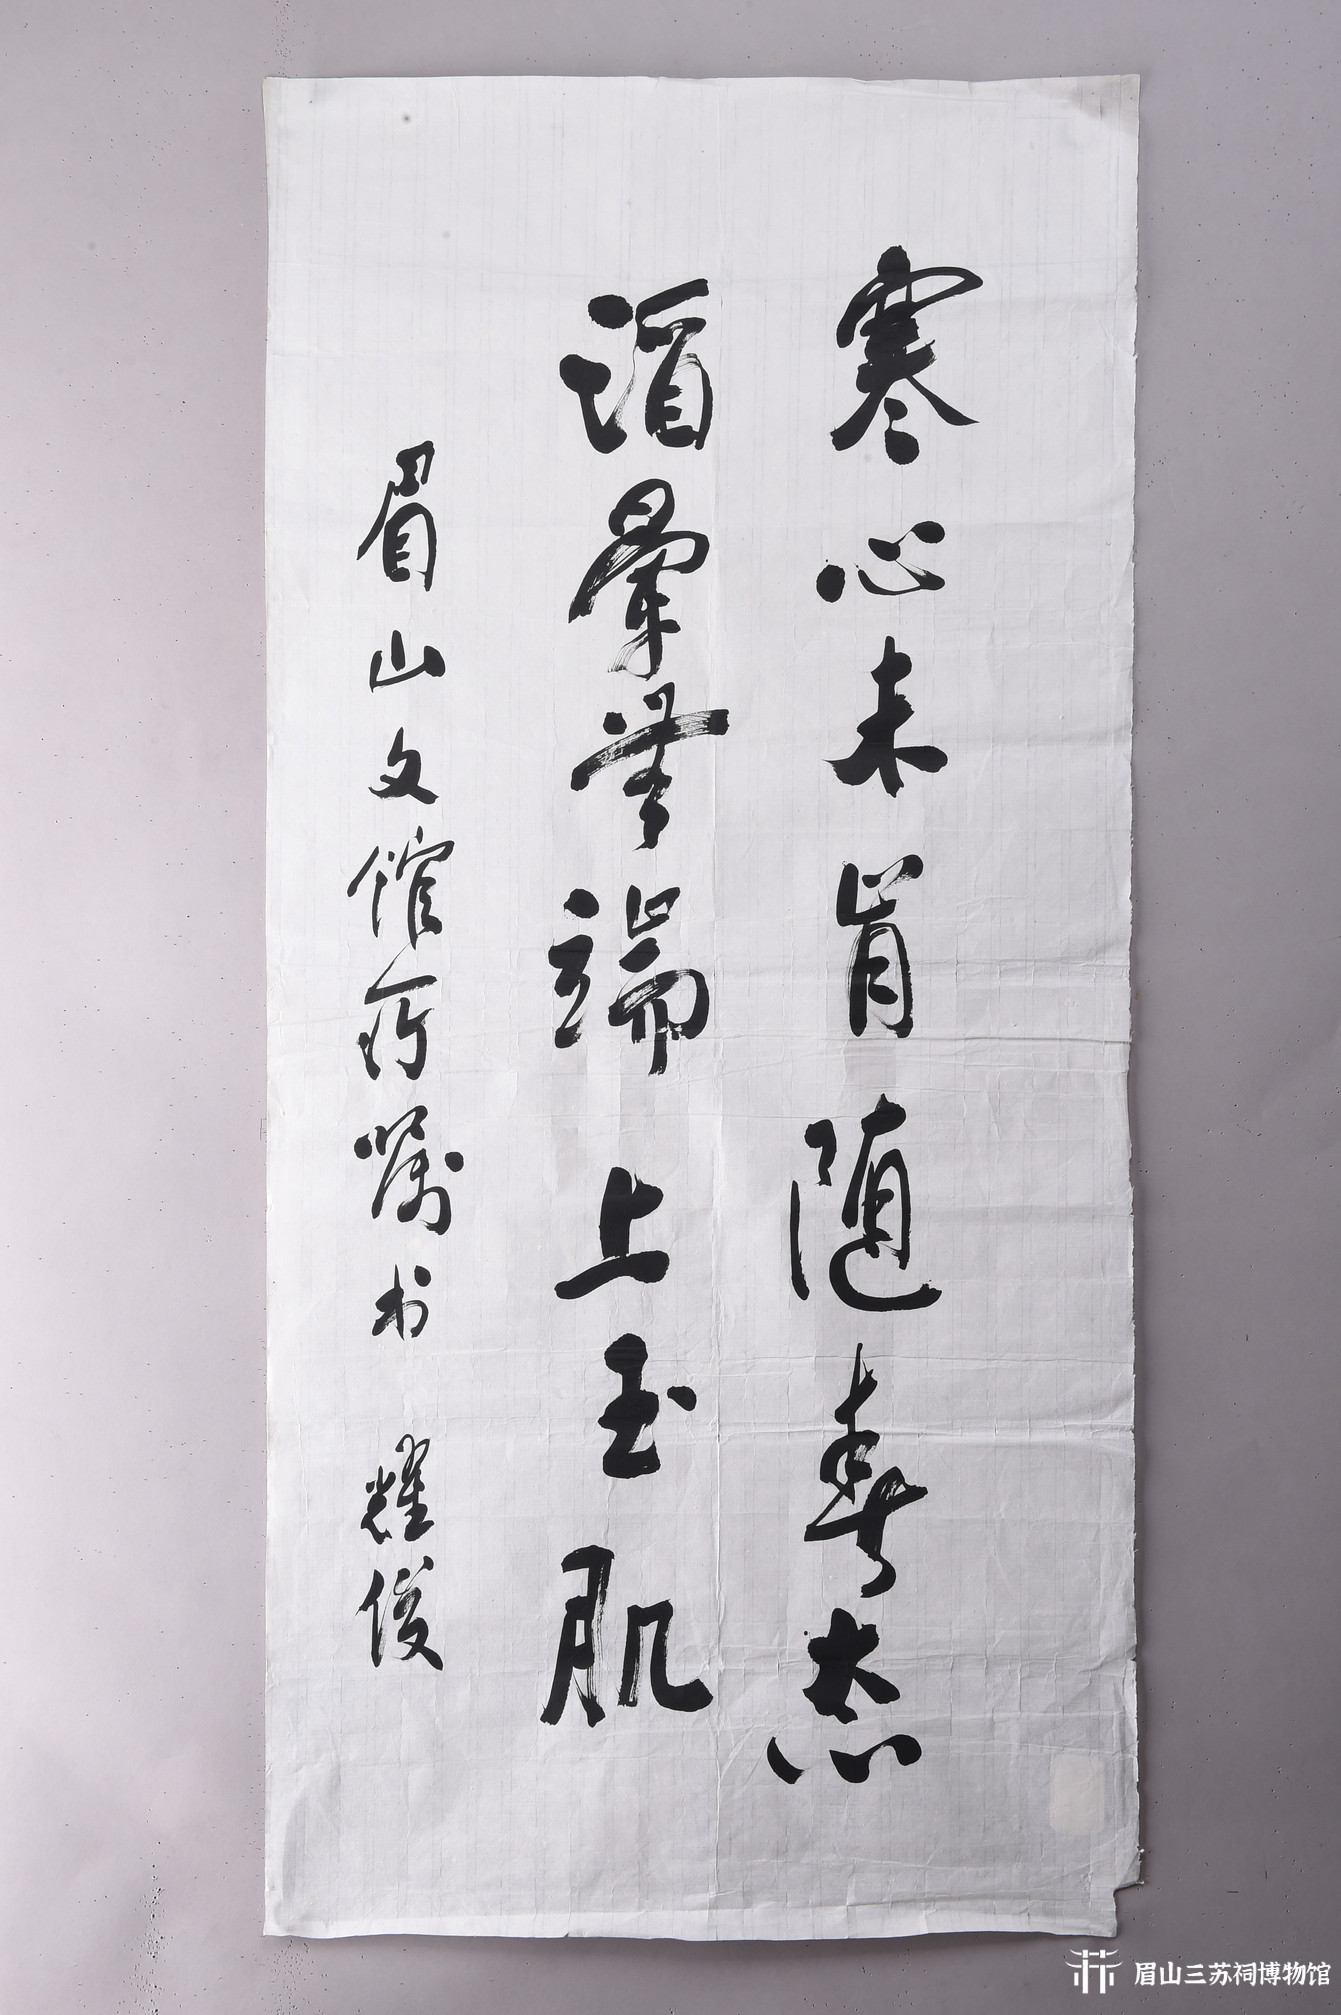 寒心未肯随春态
酒晕无端上玉肌
眉山文馆所嘱书 耀俊
眉山三苏祠博物馆